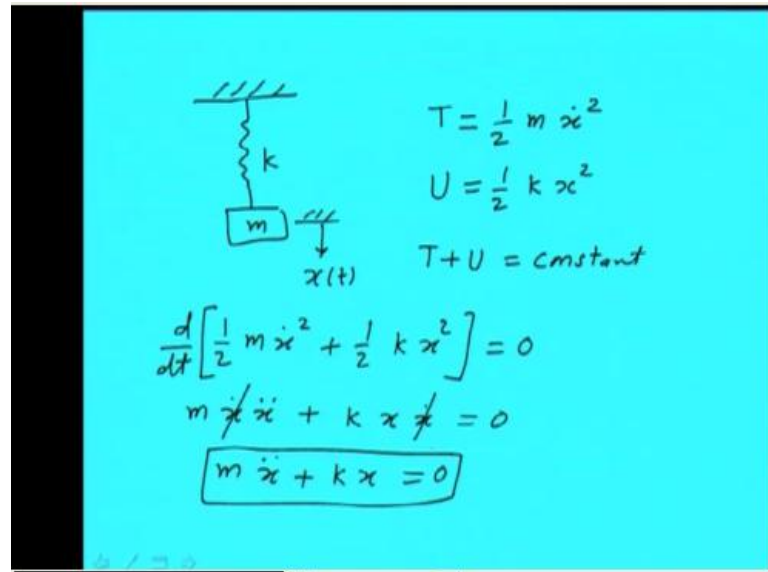 k
m
x(t)
T = 1/2 m ẋ²
U = 1/2 k x²
T+U = constant
d/dt [1/2 m ẋ² + 1/2 k x²] = 0
m ẋ ẍ + k x ẋ = 0
m ẍ + k x = 0